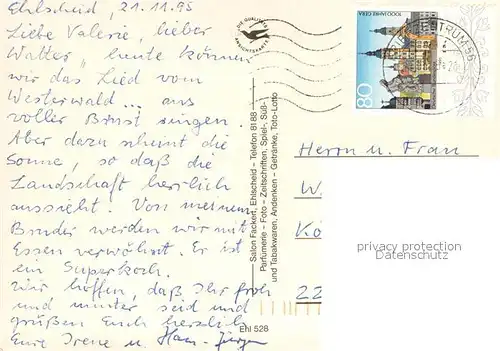 Ehlscheid, 21.11.95
Liebe Valerie, lieber
Walter, heute können
wir das Lied vom
Westerwald... aus
voller Brust singen.
Aber dazu scheint die
Sonne, so daß die
Landschaft herrlich
aussieht. Von meinem
Bruder werden wir mit
Essen verwöhnt. Er ist
ein Superkoch.
Wir hoffen, daß Ihr froh
und munter seid und
grüßen Euch herzlich
Eure Irene u. Hans-Jürgen
DIE QUALITÄTS
ANSICHTSKARTE
Salon Fackert, Ehlscheid – Telefon 81 88
Parfümerie – Foto – Zeitschriften, Spiel-, Süß-
und Tabakwaren, Andenken – Getränke, Toto-Lotto
Ehl 528
1000 JAHRE GERA
80
ZENTRUM 56
Herrn u. Frau
W
Kö
22
privacy protection
Datenschutz